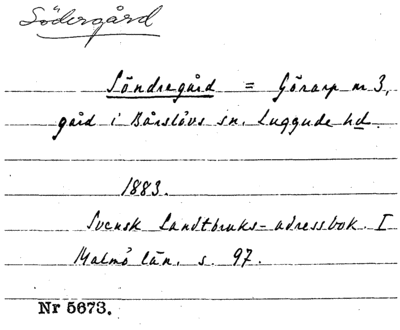 Södergård
Söndregård = Görarp nr 3,
gård i Bårslövs sn. Luggude hd.
1883.
Svensk Landtbruks-adressbok. I
Malmö län. s. 97.
Nr 5673.